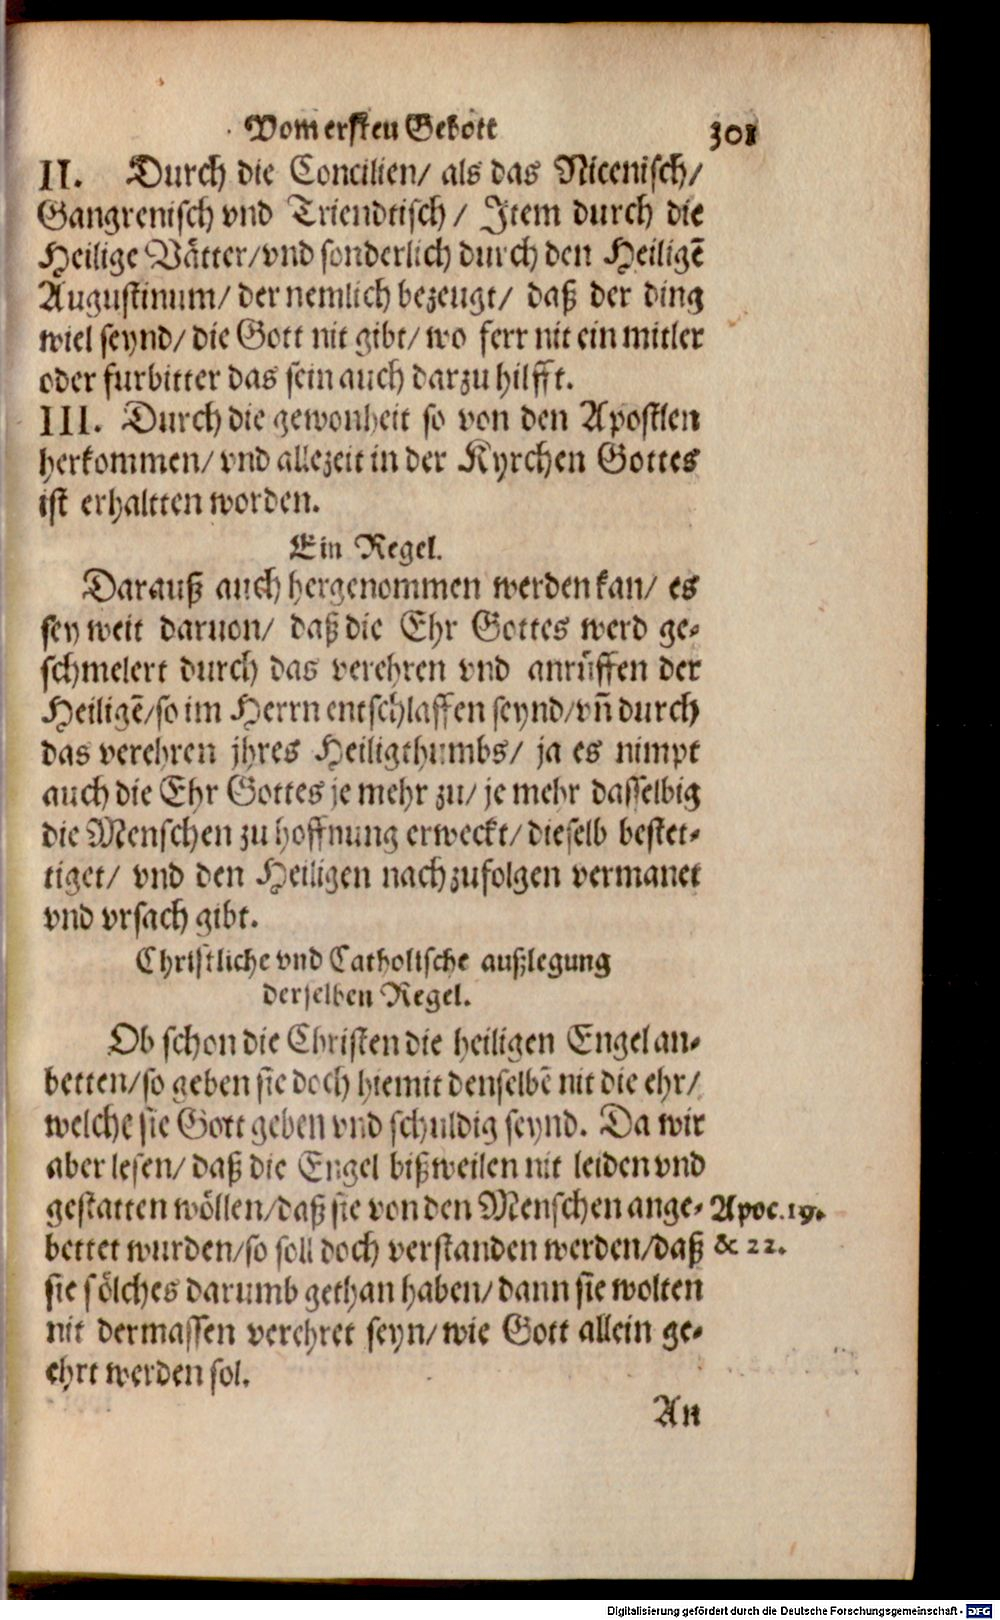 Vom ersten Gebott 301
II. Durch die Concilien/ als das Nicenisch/
Gangrenisch vnd Triendtisch / Item durch die
Heilige Vätter/vnd sonderlich durch den Heiligẽ
Augustinum/ der nemlich bezeugt/ daß der ding
wiel seynd/ die Gott nit gibt/ wo ferr nit ein mitler
oder furbitter das sein auch darzu hilfft.
III. Durch die gewonheit so von den Apostlen
herkommen/ vnd allezeit in der Kyrchen Gottes
ist erhaltten worden.
Ein Regel.
Darauß auch hergenommen werden kan/ es
sey weit daruon/ daß die Ehr Gottes werd ge-
schmelert durch das verehren vnd anrüffen der
Heiligẽ/so im Herrn entschlaffen seynd/vñ durch
das verehren jhres Heiligthumbs/ ja es nimpt
auch die Ehr Gottes je mehr zu/ je mehr dasselbig
die Menschen zu hoffnung erweckt/ dieselb bestet-
tiget/ vnd den Heiligen nachzufolgen vermanet
vnd vrsach gibt.
Christliche vnd Catholische außlegung
derselben Regel.
Ob schon die Christen die heiligen Engel an-
betten/so geben sie doch hiemit denselbẽ nit die ehr/
welche sie Gott geben vnd schuldig seynd. Da wir
aber lesen/ daß die Engel bißweilen nit leiden vnd
gestatten wöllen/daß sie von den Menschen ange- Apoc. 19.
bettet wurden/so soll doch verstanden werden/daß & 22.
sie sölches darumb gethan haben/ dann sie wolten
nit dermassen verehret seyn/ wie Gott allein ge-
ehrt werden sol.
An
Digitalisierung gefördert durch die Deutsche Forschungsgemeinschaft - DFG